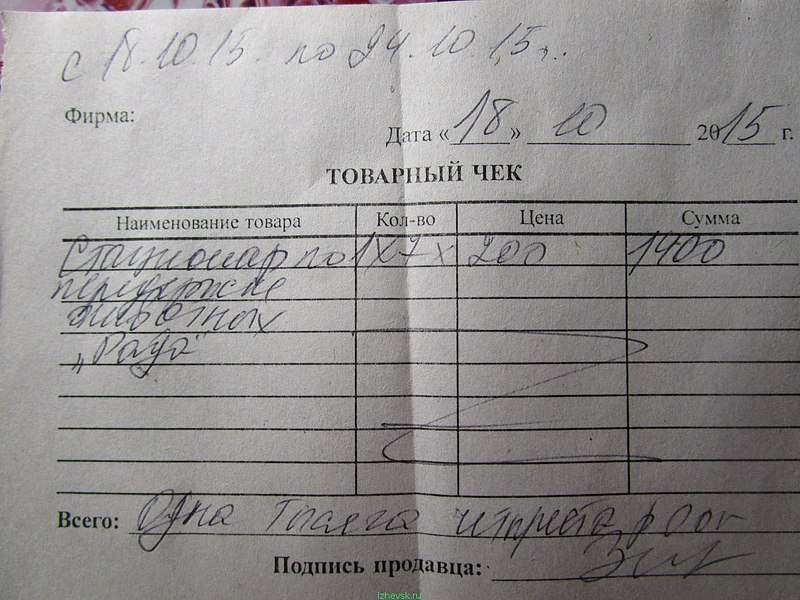 с 18.10.15. по 24.10.15г.
Фирма:
Дата «18» 10 2015 г.
ТОВАРНЫЙ ЧЕК
Наименование товара Кол-во Цена Сумма
Стационар по 1х7х 200 1400
передержке
животных
„Рада"
Всего: Одна тысяча четыреста р 00к
Подпись продавца:
Izhevsk.ru